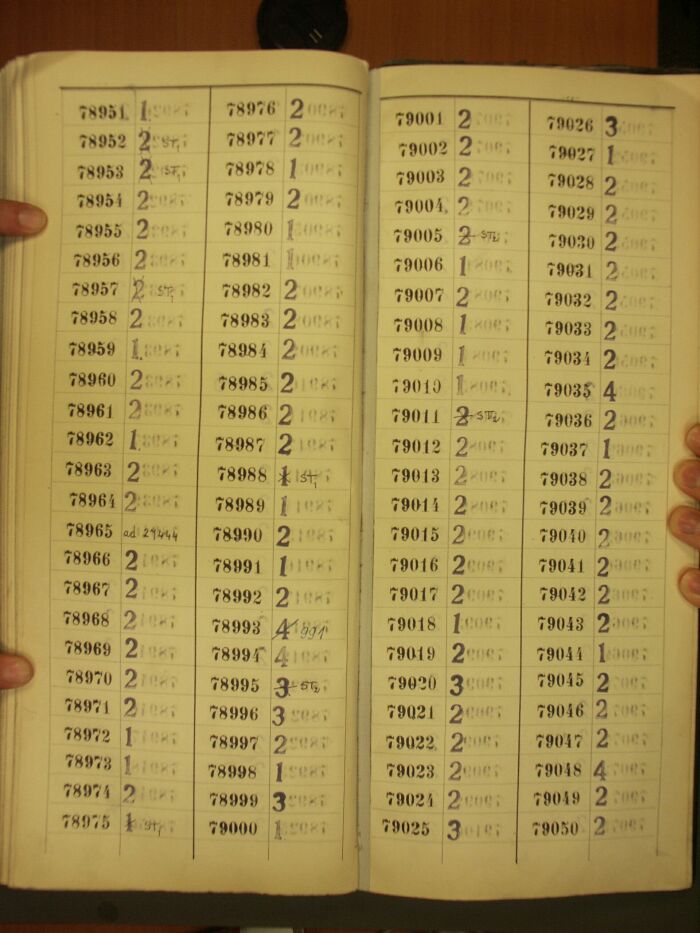 78951 1
78952 2 ST1
78953 2 ST1
78954 2
78955 2
78956 2
78957 2 ST1
78958 2
78959 1
78960 2
78961 2
78962 1
78963 2
78964 2
78965 ad 29444
78966 2
78967 2
78968 2
78969 2
78970 2
78971 2
78972 1
78973 1
78974 2
78975 1 ST1
78976 2
78977 2
78978 1
78979 2
78980 1
78981 1
78982 2
78983 2
78984 2
78985 2
78986 2
78987 2
78988 1 ST1
78989 1
78990 2
78991 1
78992 2
78993 4 991
78994 4
78995 3 ST2
78996 3
78997 2
78998 1
78999 3
79000 1
79001 2
79002 2
79003 2
79004 2
79005 2 ST2
79006 1
79007 2
79008 1
79009 1
79010 1
79011 2 ST2
79012 2
79013 2
79014 2
79015 2
79016 2
79017 2
79018 1
79019 2
79020 3
79021 2
79022 2
79023 2
79024 2
79025 3
79026 3
79027 1
79028 2
79029 2
79030 2
79031 2
79032 2
79033 2
79034 2
79035 4
79036 2
79037 1
79038 2
79039 2
79040 2
79041 2
79042 2
79043 2
79044 1
79045 2
79046 2
79047 2
79048 4
79049 2
79050 2